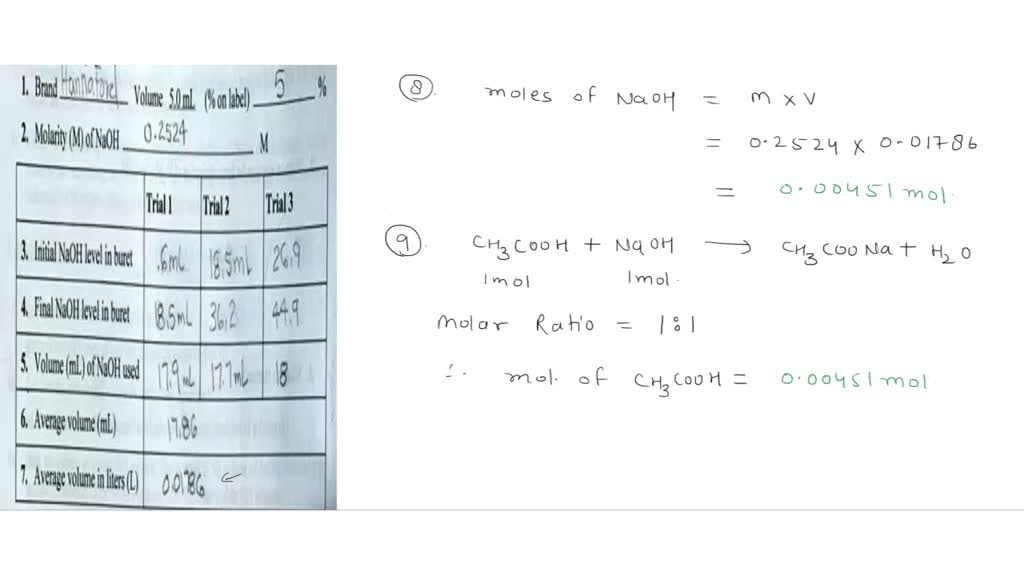 1. Brand Hannaford Volume 5.0 mL (% on label) 5 %
2. Molarity (M) of NaOH 0.2524 M
Trial 1 Trial 2 Trial 3
3. Initial NaOH level in buret .6mL 18.5mL 26.9
4. Final NaOH level in buret 18.5mL 36.2 44.9
5. Volume (mL) of NaOH used 17.9mL 17.7mL 18
6. Average volume (mL) 17.86
7. Average volume in liters (L) 0.01786 ←
8. moles of NaOH = m x V
= 0.2524 x 0.01786
= 0.00451 mol.
9. CH3COOH + NaOH → CH3COONa + H2O
1mol 1mol.
Molar Ratio = 1:1
∴ mol. of CH3COOH = 0.00451 mol